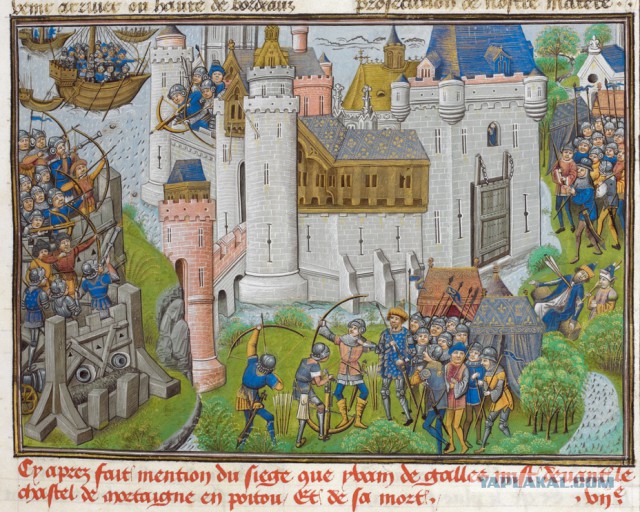 arriuer ou haure de bordeaux
prosecution de nostre matere
Cy aprez fait mention du siege que yuain de galles mist deuant le
chastel de mortaigne en poitou. Et de sa mort.
YAPLAKAL.COM